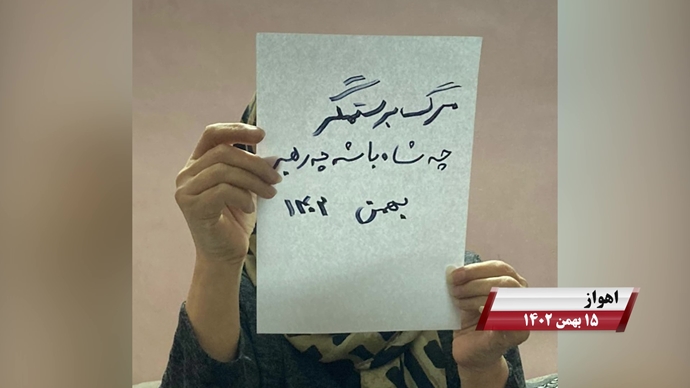 مرگ بر ستمگر
چه شاه باشه چه رهبر
بهمن ۱۴۰۲
اهواز
۱۵ بهمن ۱۴۰۲